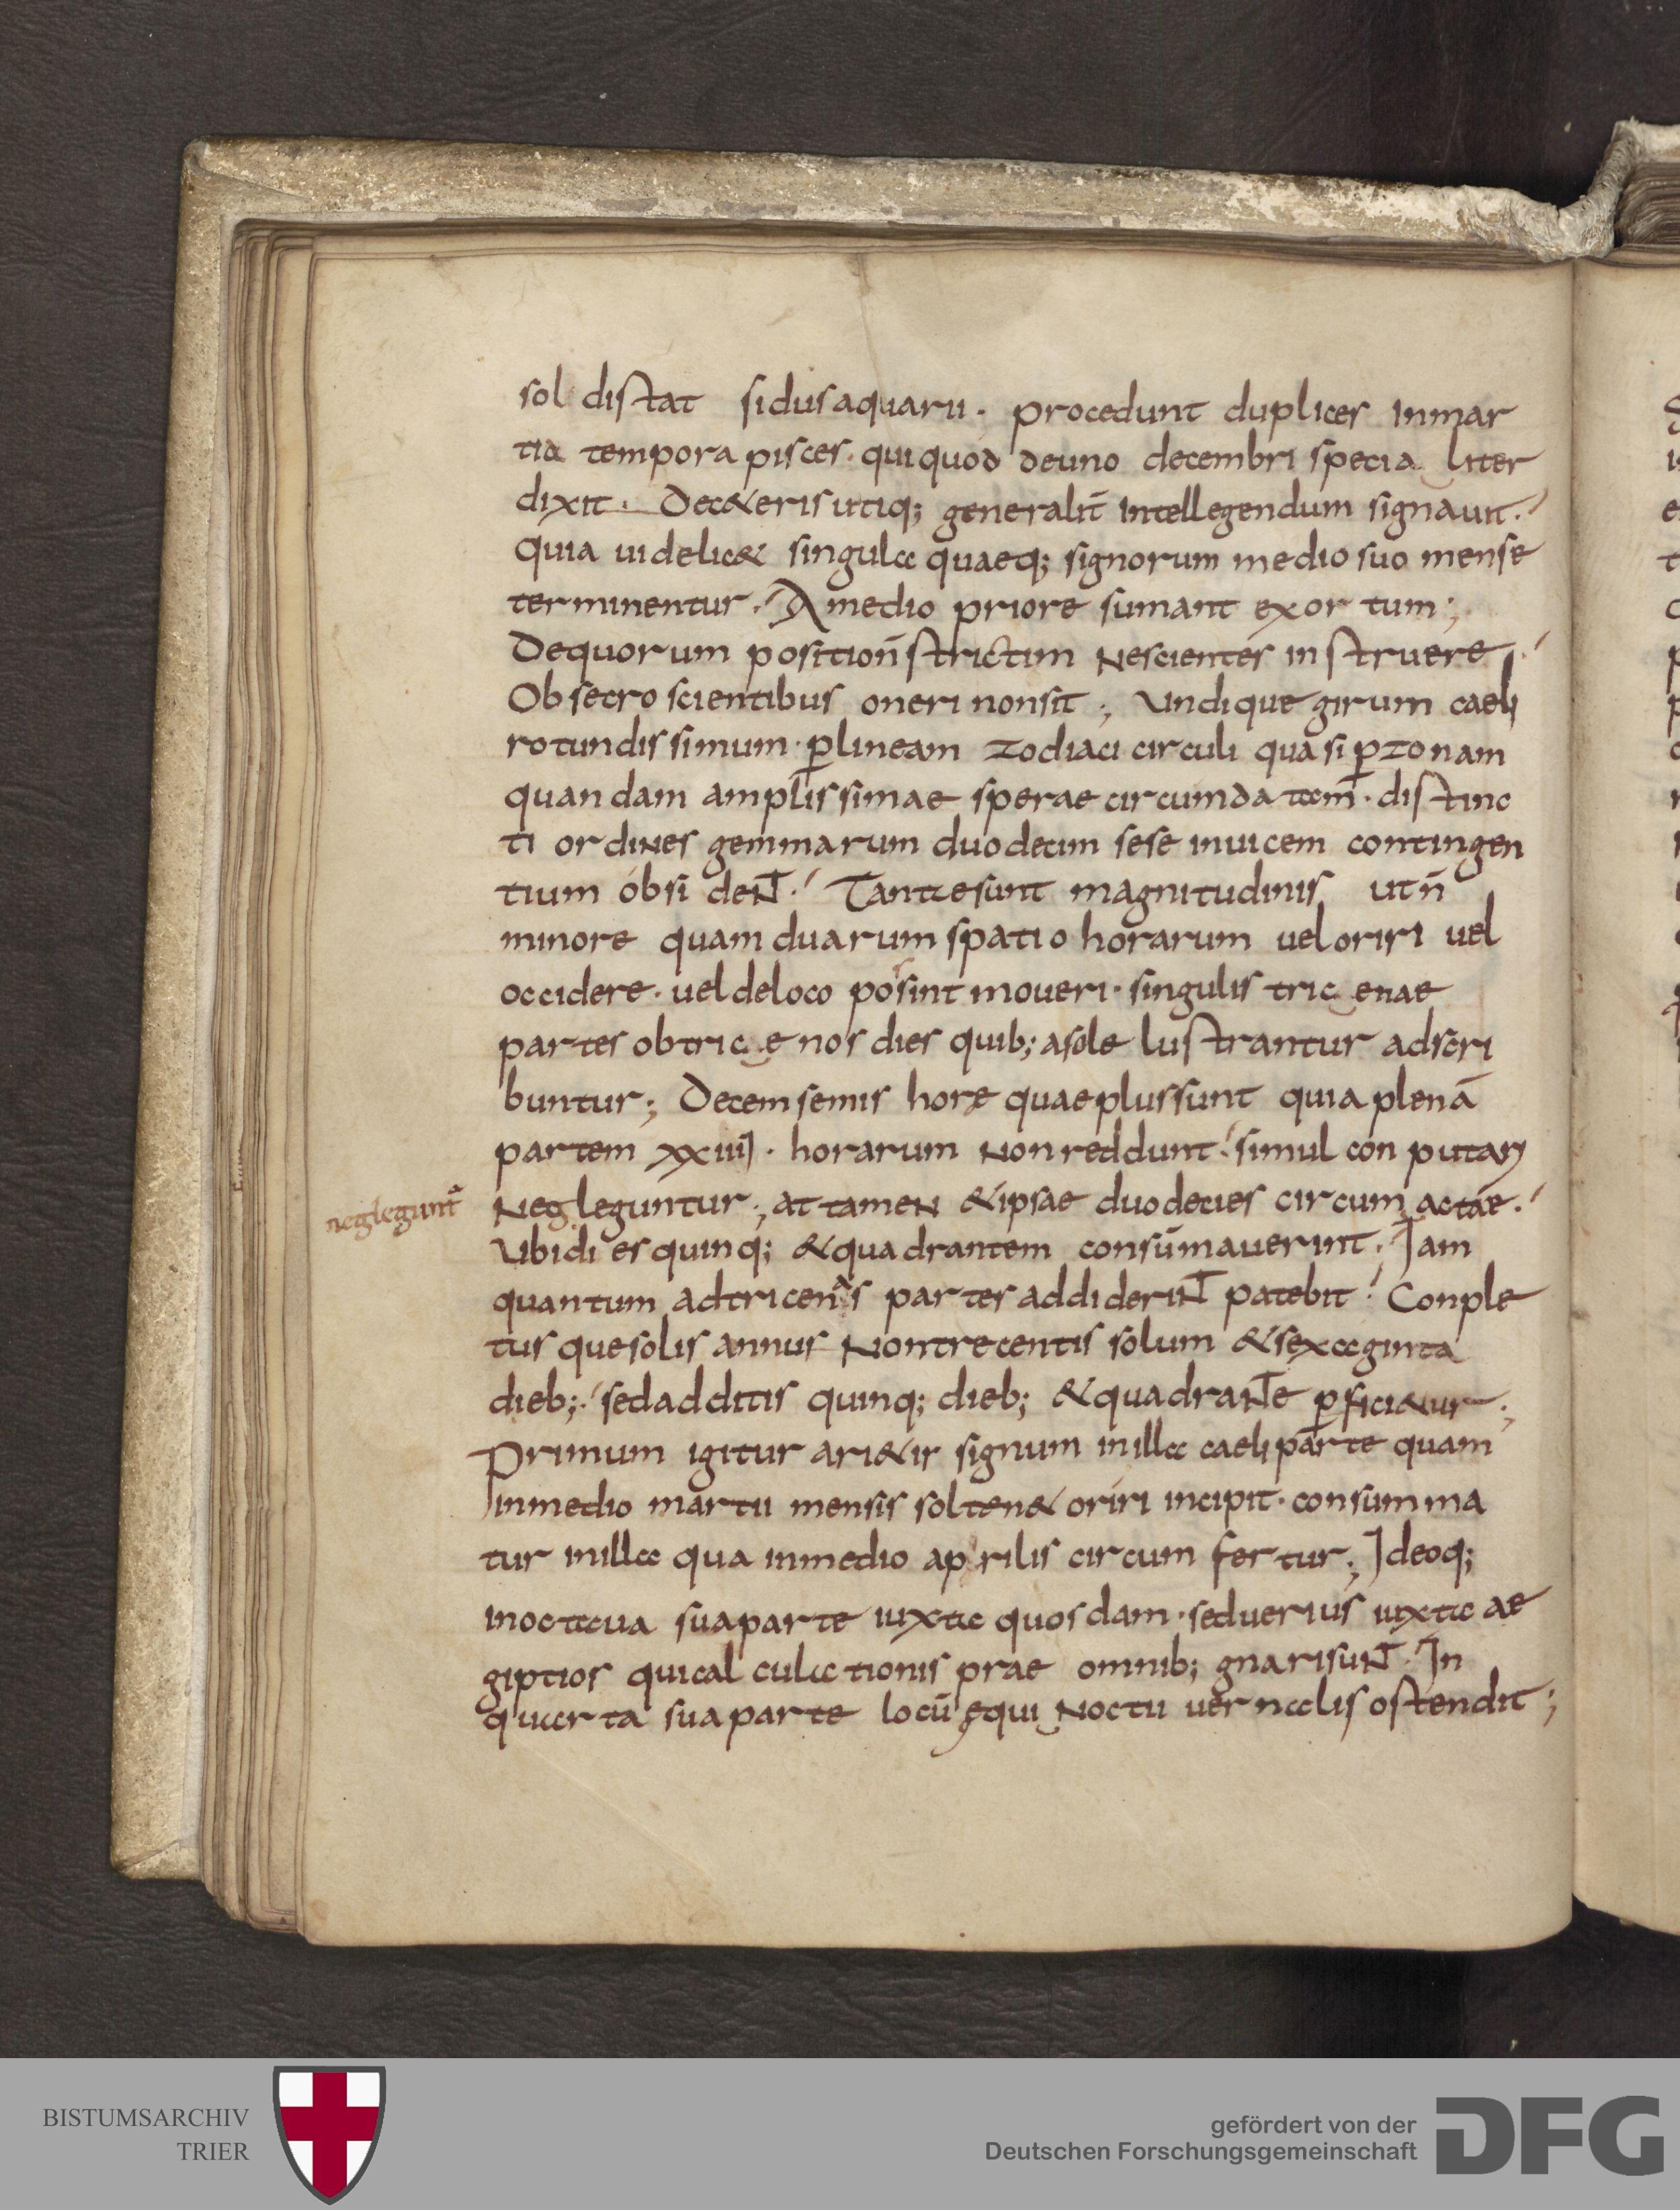 sol distat sidus aquarii · procedunt duplices Inmar
tia tempora pisces · qui quod deuno decembri specia liter
dixit · Dec&eris utiq; generalit̄ Intellegendum signauit ·
quia uidelic& singula quaeq; signorum medio suo mense
terminentur · A medio priore sumant exor tum ;
Dequorum position̄ strictim Nescientes instruere ·
Obsecro scientibus oneri nonsit ; Undique girum caeli
rotundissimum · ꝑlineam zodiaci circuli quasi ꝑzonam
quandam amplissimae sperae circumdatam̄ · distinc
ti ordiNes gemmarum duodecim sese inuicem contingen
tium obsideNT · Tantae sunt magnitudinis ut n̄
minore quam duarum spatio horarum uel oriri uel
occidere · uel deloco possint moueri · singulis tric enae
partes obtric e nos dies quib; asole lustrantur adscri
buntur ; Decem semis horę quae plus sunt quia plenā
partem xxiiij · horarum Non reddunt · simul con putari
neglegunt᷑ Negleguntur ; at tameN &ipsae duodecies circum actae ·
Ubi di es quinq; &quadrantem consūmauerint · Iam
quantum adtricenas partes addideriNT patebit · Conple
tus que solis annus Nontrecentis solum &sexaginta
dieb; · sed additis quinq; dieb; &quadraNTe ꝑfici&ur ;
Primum igitur ari&is signum inilla caeli parte quam
Inmedio martii mensis sol ten& oriri incipit · consumma
tur inilla qua inmedio aprilis circum fertur ; Ideoq;
inoctaua suaparte iuxta quosdam · sed uerius iuxta ae
giptios qui calculationis prae omnib; gnari suNT · In
quarta suaparte locū ęqui Noctii uernalis ostendit ;
BISTUMSARCHIV
TRIER
gefördert von der
Deutschen Forschungsgemeinschaft
DFG